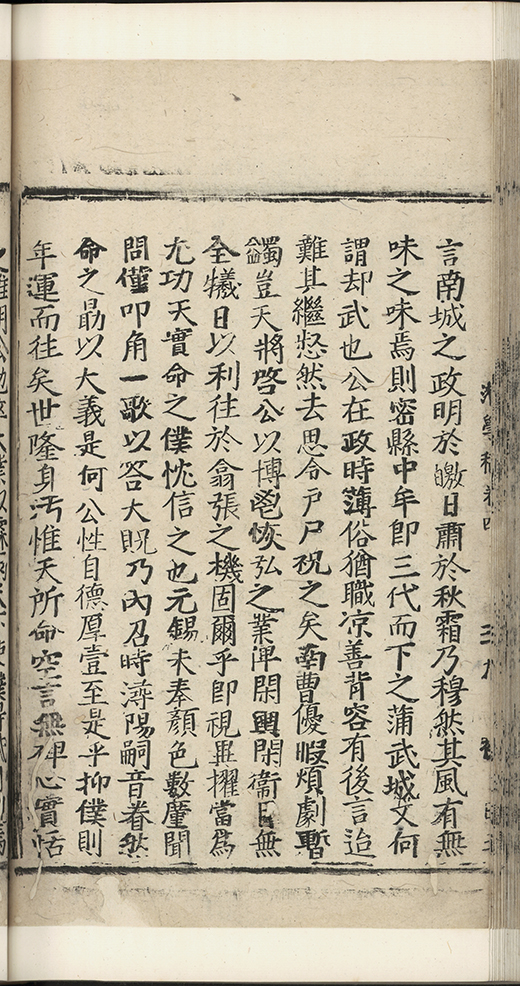 言南城之政明於皦日肅於秋霜乃穆然其風有無
味之味焉則密縣中牟卽三代而下之蒲武城又何
謂却武也公在政時薄俗猶職凉善背容有後言迨
難其繼愁然去思令戸尸祝之矣南曹優暇煩劇暫
蠲豈天將啓公以博鬯恢弘之業俾閑輿閑衞日無
全犧日以利往於翕張之機固爾乎卽視畢擢當爲
尤功天實命之僕忱信之也元錫未奉顏色數塵聞
問僅叩角一歌以答大貺乃內召時潯陽嗣音眷然
命之勗以大義是何公性自德厚壹至是乎抑僕則
年運而往矣世隆身汚惟天所命空言無裨心實恬